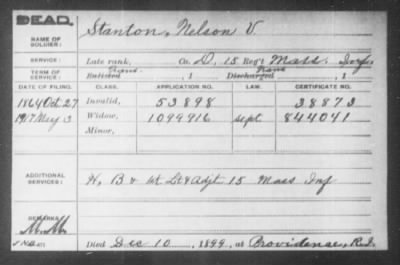 DEAD.
NAME OF SOLDIER: Stanton, Nelson V.
SERVICE: Late rank, Co. D, 15 Reg't Mass. Inf.
TERM OF SERVICE: Enlisted , 1 Discharged , 1
DATE OF FILING. CLASS. APPLICATION NO. LAW. CERTIFICATE NO.
1864 Oct. 27 Invalid, 53898 38873
1917 May 3 Widow, 1099916 sept 844041
Minor,
ADDITIONAL SERVICES: H, B & Lt & Adjt 15 Mass Inf
REMARKS:
Died Dec 10, 1899, at Providence, R.I.